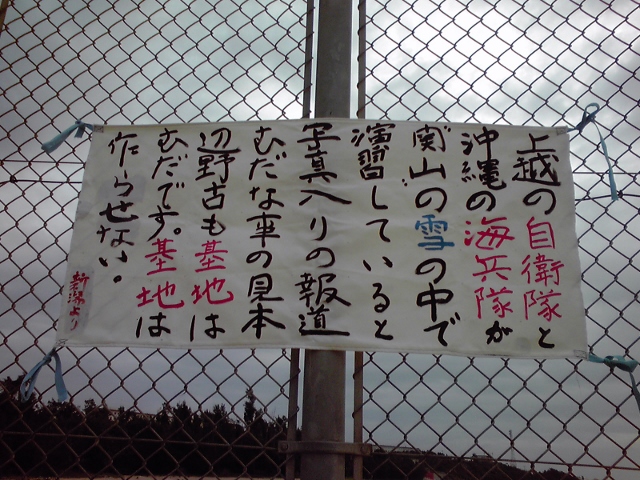 上越の自衛隊と
沖縄の海兵隊が
関山の雪の中で
演習していると
写真入りの報道
むだな事の見本
辺野古も基地は
むだです。基地は
作らせない。
新潟より